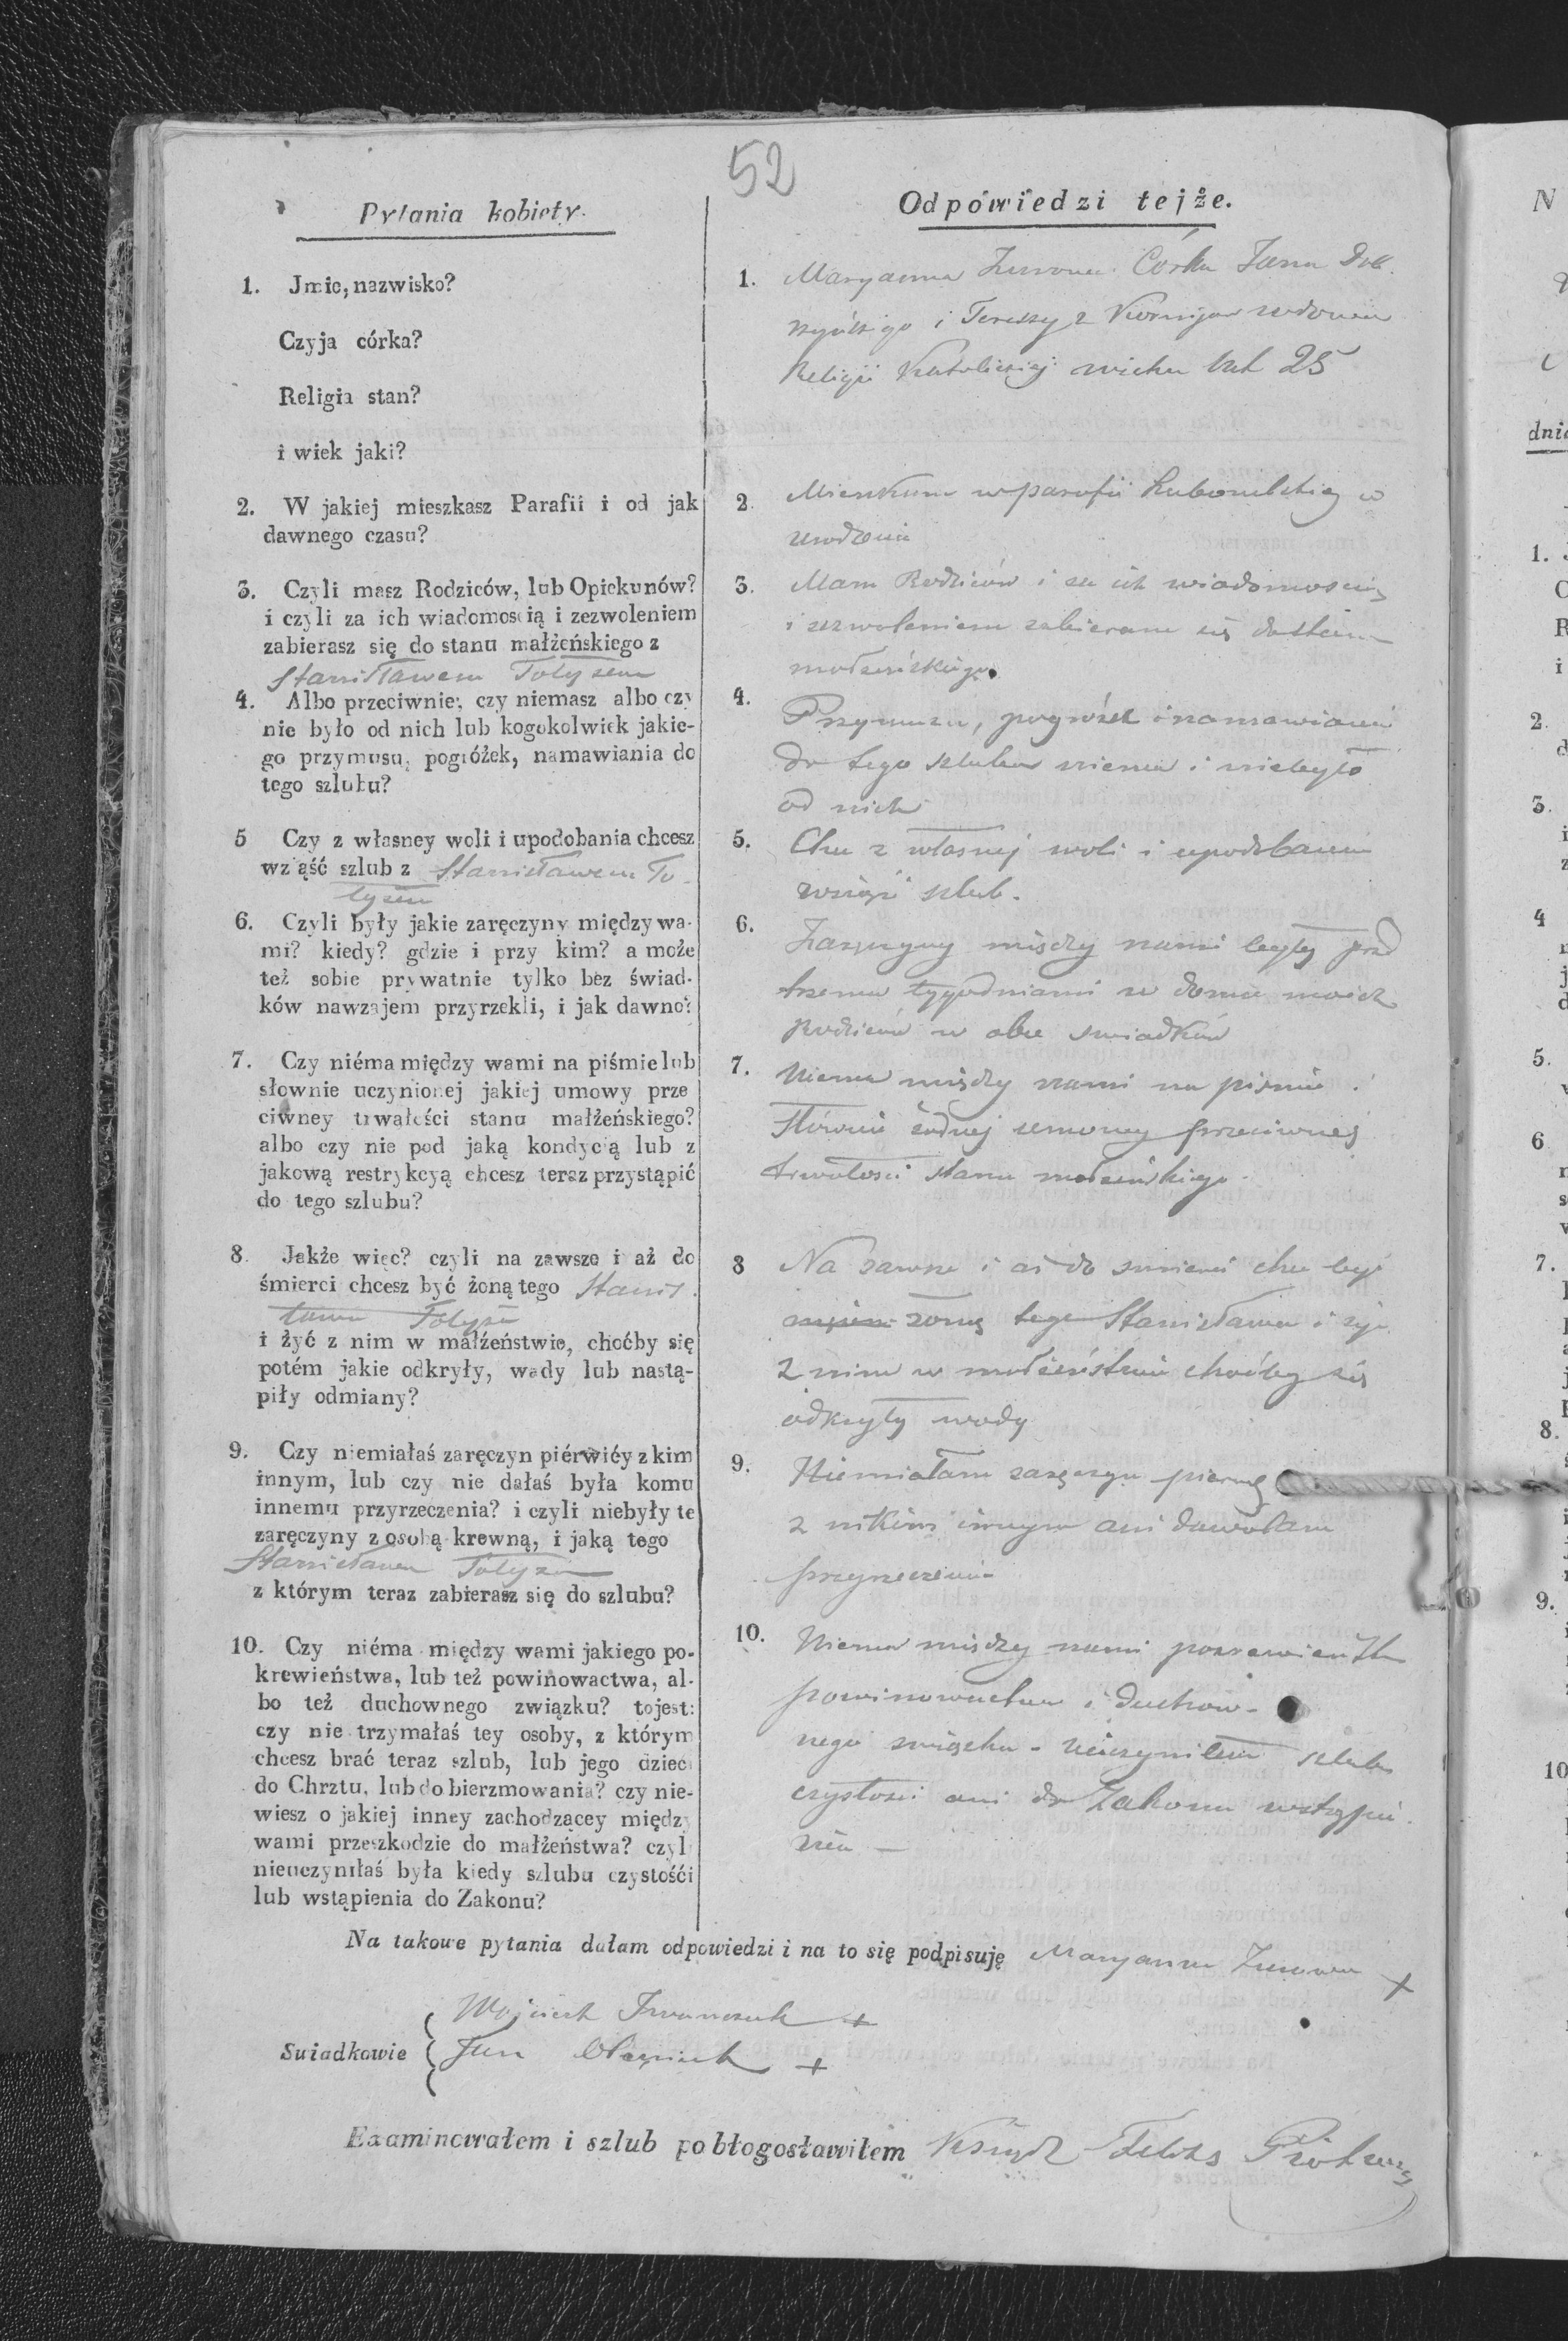 52
Pytania kobiety.
1. Jmie, nazwisko?
Czyja córka?
Religia stan?
i wiek jaki?
2. W jakiej mieszkasz Parafii i od jak
dawnego czasu?
3. Czyli masz Rodziców, lub Opiekunów?
i czyli za ich wiadomością i zezwoleniem
zabierasz się do stanu małżeńskiego z
Stanisławem Tołyszem
4. Albo przeciwnie; czy niemasz albo czy
nie było od nich lub kogokolwiek jakie-
go przymusu, pogróżek, namawiania do
tego szlubu?
5 Czy z własney woli i upodobania chcesz
wziąść szlub z Stanisławem To-
łyszem
6. Czyli były jakie zaręczyny między wa-
mi? kiedy? gdzie i przy kim? a może
też sobie prywatnie tylko bez świad-
ków nawzajem przyrzekli, i jak dawno?
7. Czy niéma między wami na piśmie lub
słownie uczynionej jakiej umowy prze
ciwney trwałości stanu małżeńskiego?
albo czy nie pod jaką kondycią lub z
jakową restrykcyą chcesz teraz przystąpić
do tego szlubu?
8. Jakże więc? czyli na zawsze i aż do
śmierci chcesz być żoną tego Stanis-
ława Tołysza
i żyć z nim w małżeństwie, choćby się
potém jakie odkryły, wady lub nastą-
piły odmiany?
9. Czy niemiałaś zaręczyn piérwiéy z kim
innym, lub czy nie dałaś była komu
innemu przyrzeczenia? i czyli niebyły te
zaręczyny z osobą krewną, i jaką tego
Stanisława Tołysza
z którym teraz zabierasz się do szlubu?
10. Czy niéma między wami jakiego po-
krewieństwa, lub też powinowactwa, al-
bo też duchownego związku? tojest:
czy nie trzymałaś tey osoby, z którym
chcesz brać teraz szlub, lub jego dzieci
do Chrztu, lub do bierzmowania? czy nie-
wiesz o jakiej inney zachodzącey między
wami przeszkodzie do małżeństwa? czyli
nieuczyniłaś była kiedy szlubu czystośći
lub wstąpienia do Zakonu?
Odpówiedzi tejże.
1. Maryanna Córka Jana
i Teressy z wdowa
Religii Katolickiej wieku lat 25
2. Mieszkam w parafii od
urodzenia
3. Mam Rodziców i za ich wiadomością
i zezwoleniem zabieram się do stanu
małżeńskiego
4. Przymusu, pogróżek i namawiania
do tego szlubu niema i niebyło
od nich
5. Chce z własnej woli i upodobania
wziąść szlub.
6. Zaręczyny między nami były przed
trzema tygodniami w domu moich
Rodziców w obec swiadków
7. Niema między nami na pismie i
słównie żadnej umowy przeciwnej
trwałości stanu małżeńskiego.
8 Na zawsze i aż do smierci chce być
żoną tego Stanisława i żyć
z nim w małżeństwie choćby się
odkryły wady
9. Niemiałam zaręczyn pierwej
z nikim innym ani dawałam
przyrzeczenia
10. Niema między nami pokrewieństwa
powinowactwa i duchow-
nego związku - szlubu
czystosci ani do Zakonu wstąpie-
nia -
Na takowe pytania dałam odpowiedzi i na to się podpisuję Maryanna +
Wojciech Iwanczuk +
Suiadkowie Jan +
Examinowałem i szlub pobłogosławiłem Ksiądz Feliks
N
dnia
1.
2.
3.
4
5.
6
7.
8.
9.
10